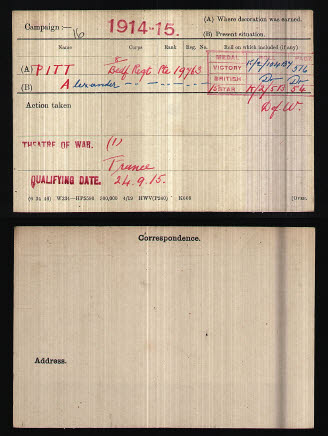 Campaign :— 16 1914-15.
(A) Where decoration was earned.
(B) Present situation.
Name Corps Rank Reg. No. Roll on which included (if any)
(A) PITT Bedf. Regt. Pte 19763
MEDAL PAGE
VICTORY 576
(B) Alexander BRITISH Do Do
STAR K/2/5B 54
Action taken
D of W.
THEATRE OF WAR. (1)
France
QUALIFYING DATE. 24.9.15.
(6 34 46) W234—HP5590 500,000 4/19 HWV(P240) K608 [Over.
Correspondence.
Address.